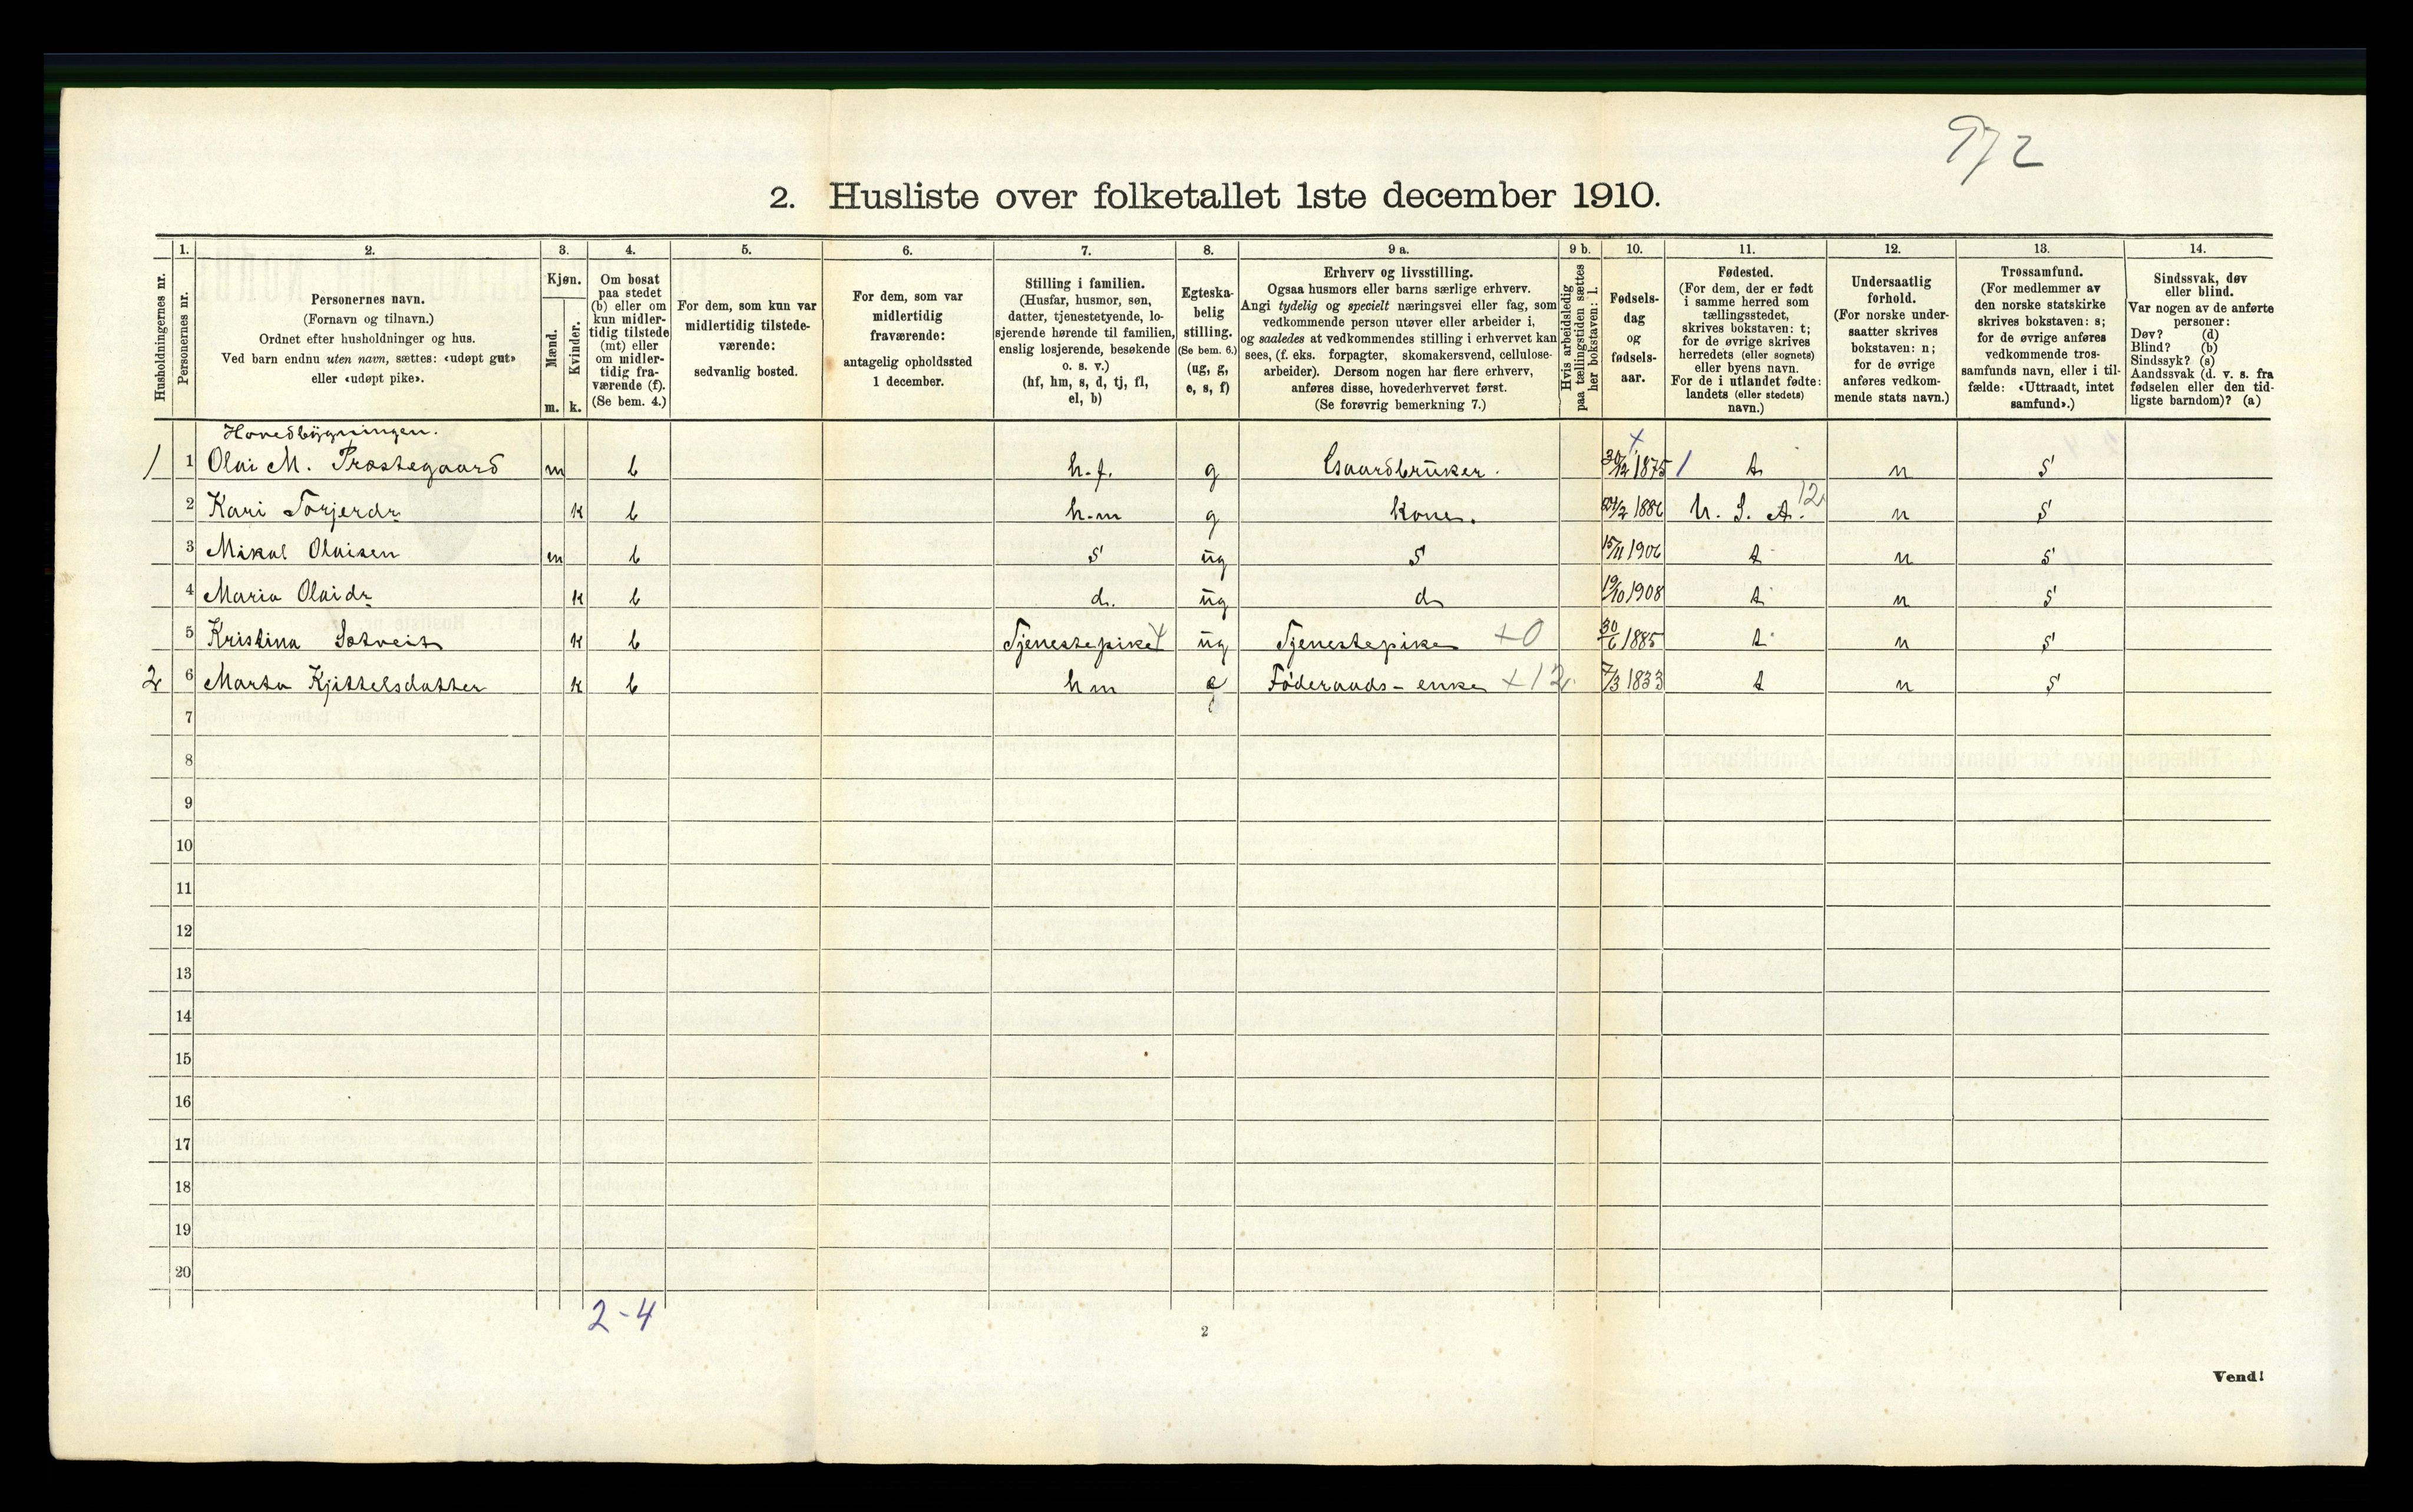 972
2. Husliste over folketallet 1ste december 1910.
Husholdningernes nr.
1.
Personernes nr.
2.
Personernes navn.
(Fornavn og tilnavn.)
Ordnet efter husholdninger og hus.
Ved barn endnu uten navn, sættes: «udøpt gut»
eller «udøpt pike».
3.
Kjøn.
Mænd.
m.
Kvinder.
k.
4.
Om bosat
paa stedet
(b) eller om
kun midler-
tidig tilstede
(mt) eller
om midler-
tidig fra-
værende (f).
(Se bem. 4.)
5.
For dem, som kun var
midlertidig tilstede-
værende:
sedvanlig bosted.
6.
For dem, som var
midlertidig
fraværende:
antagelig opholdssted
1 december.
7.
Stilling i familien.
(Husfar, husmor, søn,
datter, tjenestetyende, lo-
sjerende hørende til familien,
enslig losjerende, besøkende
o. s. v.)
(hf, hm, s, d, tj, fl,
el, b)
8.
Egteska-
belig
stilling.
(Se bem. 6.)
(ug, g,
e, s, f)
9 a.
Erhverv og livsstilling.
Ogsaa husmors eller barns særlige erhverv.
Angi tydelig og specielt næringsvei eller fag, som
vedkommende person utøver eller arbeider i,
og saaledes at vedkommendes stilling i erhvervet kan
sees, (f. eks. forpagter, skomakersvend, cellulose-
arbeider). Dersom nogen har flere erhverv,
anføres disse, hovederhvervet først.
(Se forøvrig bemerkning 7.)
9 b.
Hvis arbeidsledig
paa tællingstiden sættes
her bokstaven: l.
10.
Fødsels-
dag
og
fødsels-
aar.
11.
Fødested.
(For dem, der er født
i samme herred som
tællingsstedet,
skrives bokstaven: t;
for de øvrige skrives
herredets (eller sognets)
eller byens navn.
For de i utlandet fødte:
landets (eller stedets)
navn.)
12.
Undersaatlig
forhold.
(For norske under-
saatter skrives
bokstaven: n;
for de øvrige
anføres vedkom-
mende stats navn.)
13.
Trossamfund.
(For medlemmer av
den norske statskirke
skrives bokstaven: s;
for de øvrige anføres
vedkommende tros-
samfunds navn, eller i til-
fælde: «Uttraadt, intet
samfund».)
14.
Sindssvak, døv
eller blind.
Var nogen av de anførte
personer:
Døv? (d)
Blind? (b)
Sindssyk? (s)
Aandssvak (d. v. s. fra
fødselen eller den tid-
ligste barndom)? (a)
Hovedbygningen.
1 1 Olai M. Præstegaard m b h.f. g Gaardbruker. 30/12 1875 1 t n s
2 Kari Torjerdr k b h.m g kone. 1886 U. S. A. 12 n s
3 Mikal Olaisen m b s ug s 15/11 1906 t n s
4 Maria Olaidr k b d. ug d 19/10 1908 t n s
5 Kristina Sotveit k b Tjenestepike ug Tjenestepike +0 30/6 1885 t n s
2 6 Marta Kjittelsdatter k b hm e Føderaads-enke +12. 7/3 1833 t n s
7
8
9
10
11
12
13
14
15
16
17
18
19
20
2-4
2
Vend!